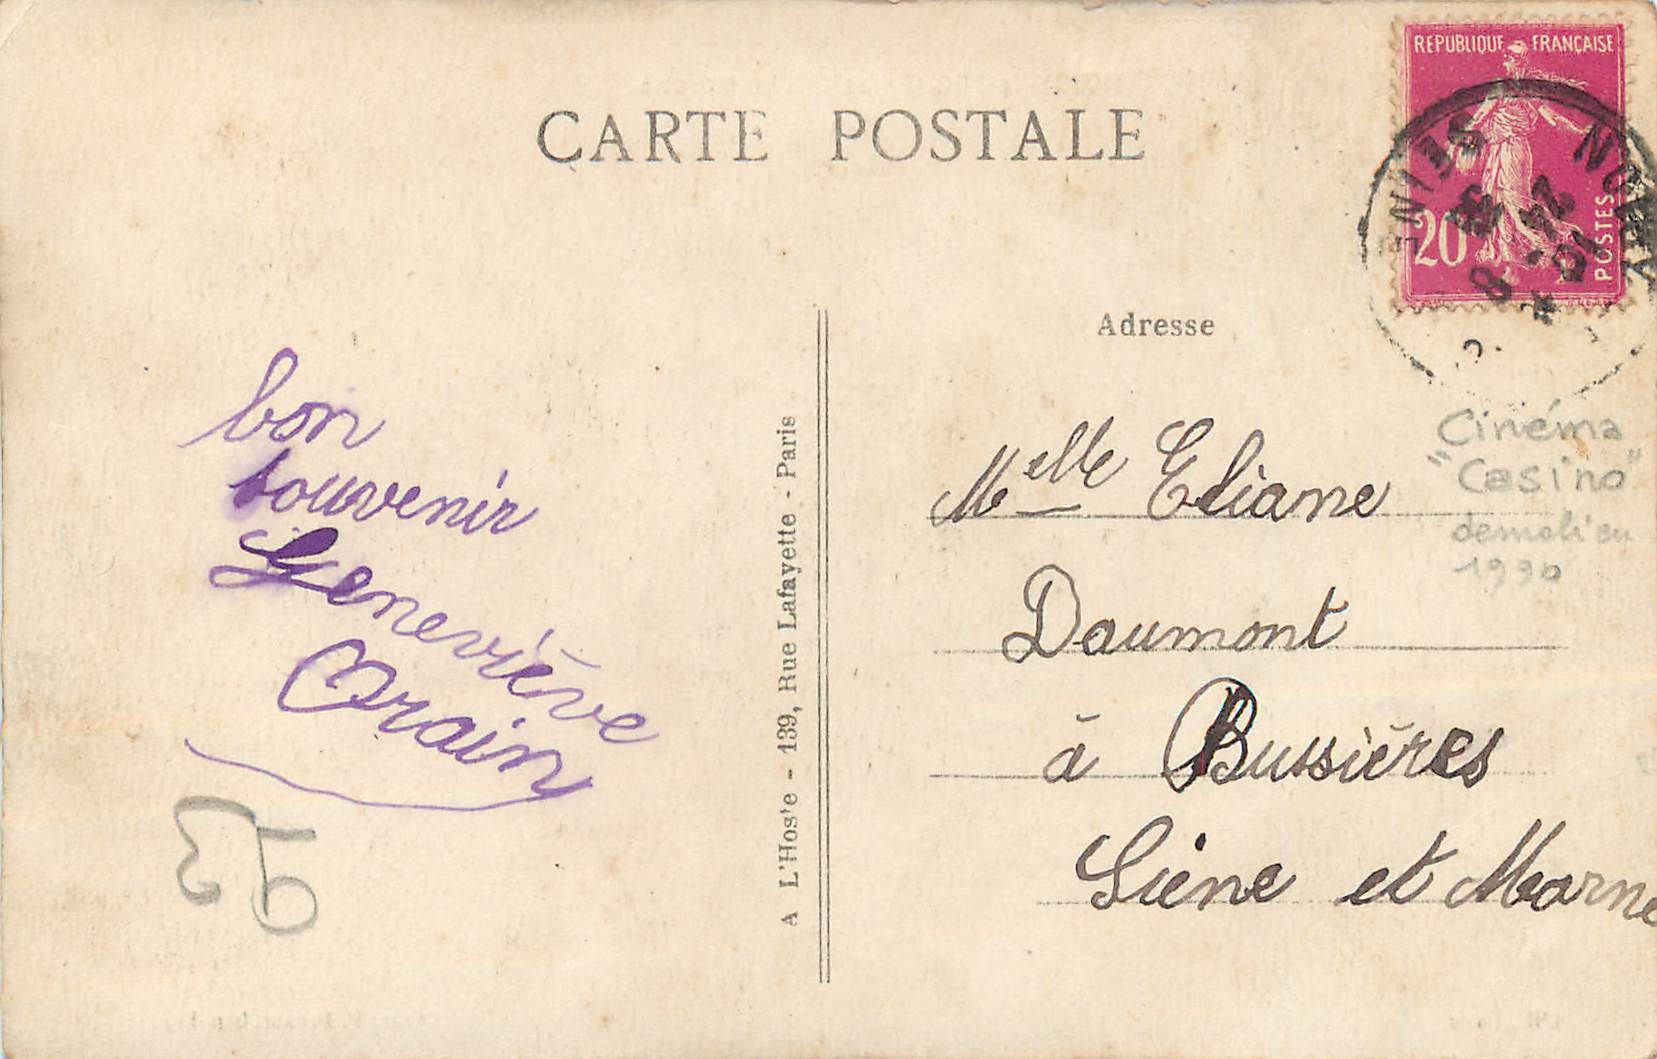 CARTE POSTALE
REPUBLIQUE FRANÇAISE
20
POSTES
SEINE
Adresse
bon
souvenir
Geneviève
Orain
93
A L'Hoste - 139, Rue Lafayette - Paris
Cinéma
"Casino"
demoli en
1990
Melle Eliane
Daumont
à Bussières
Siene et Marne